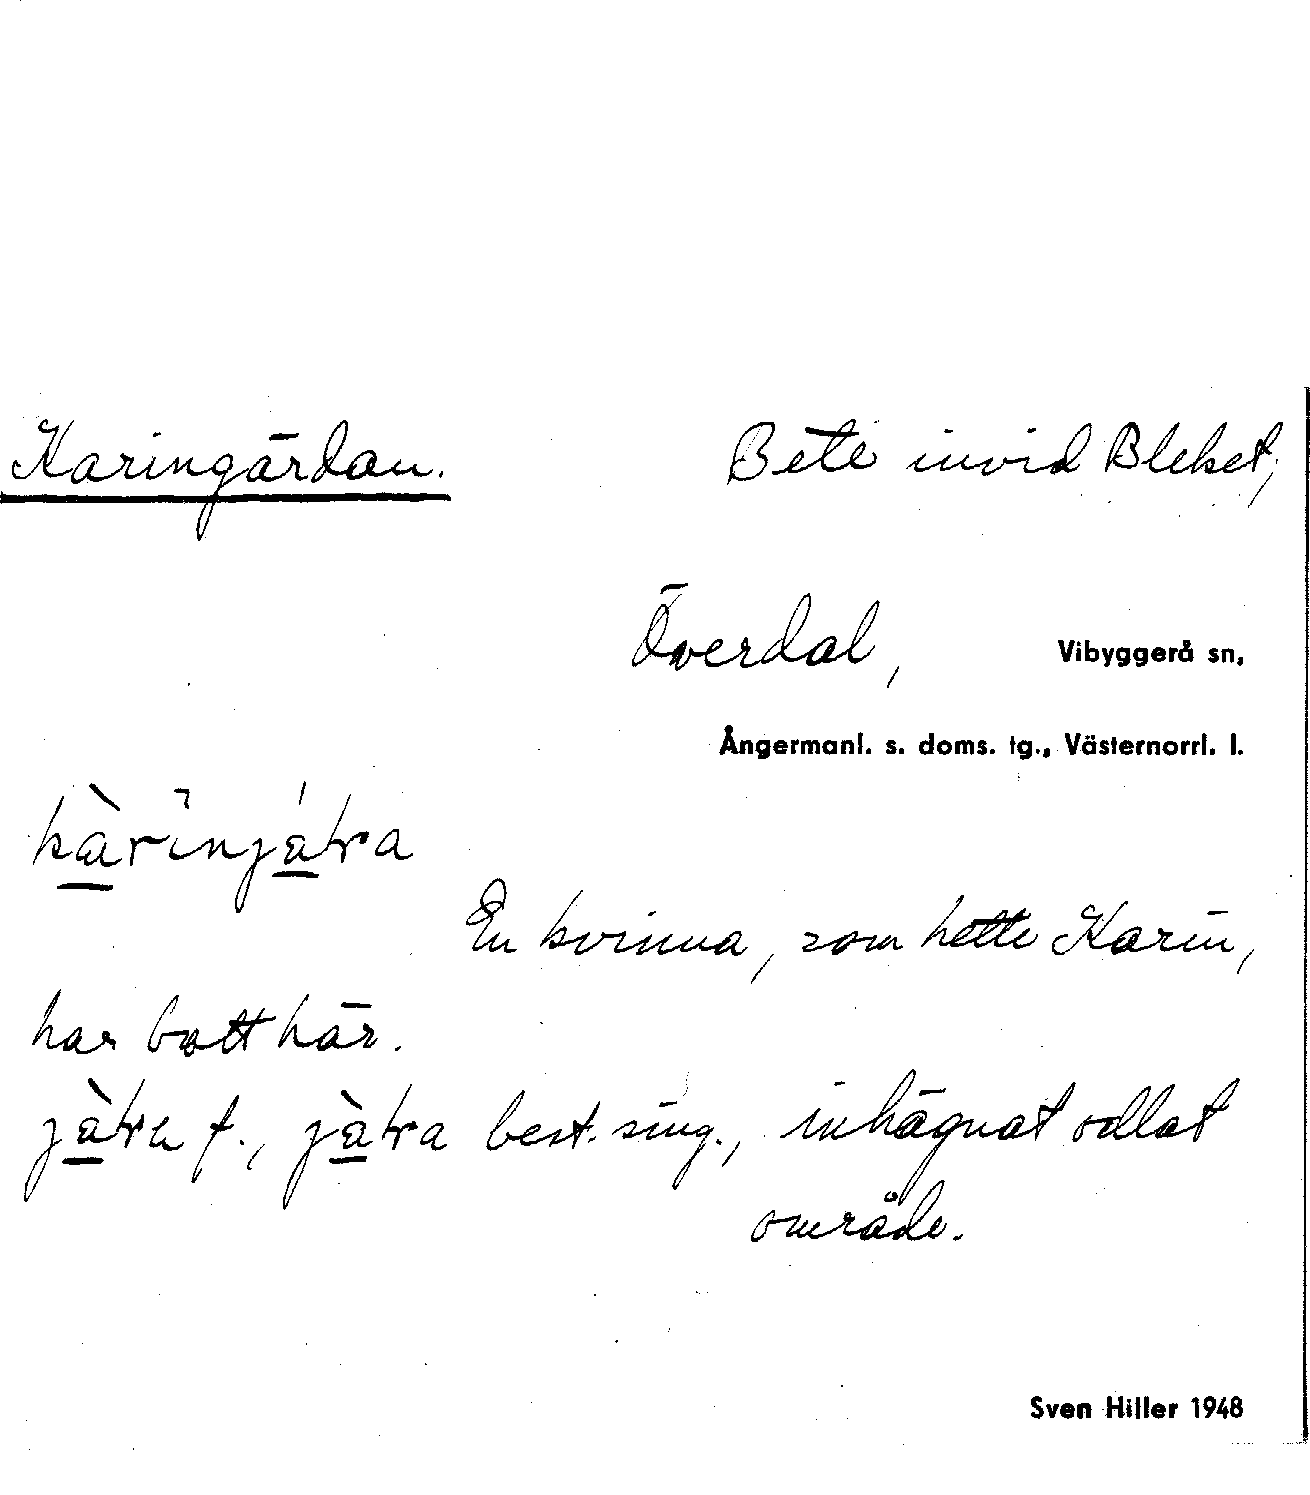 Karingärdan. Bete invid Bleket,
Överdal, Vibyggerå sn,
Ångermanl. s. doms. tg., Västernorrl. l.
En kvinna, som hette Karin,
har bott här.
best. sing., inhägnat odlat
område.
Sven Hiller 1948